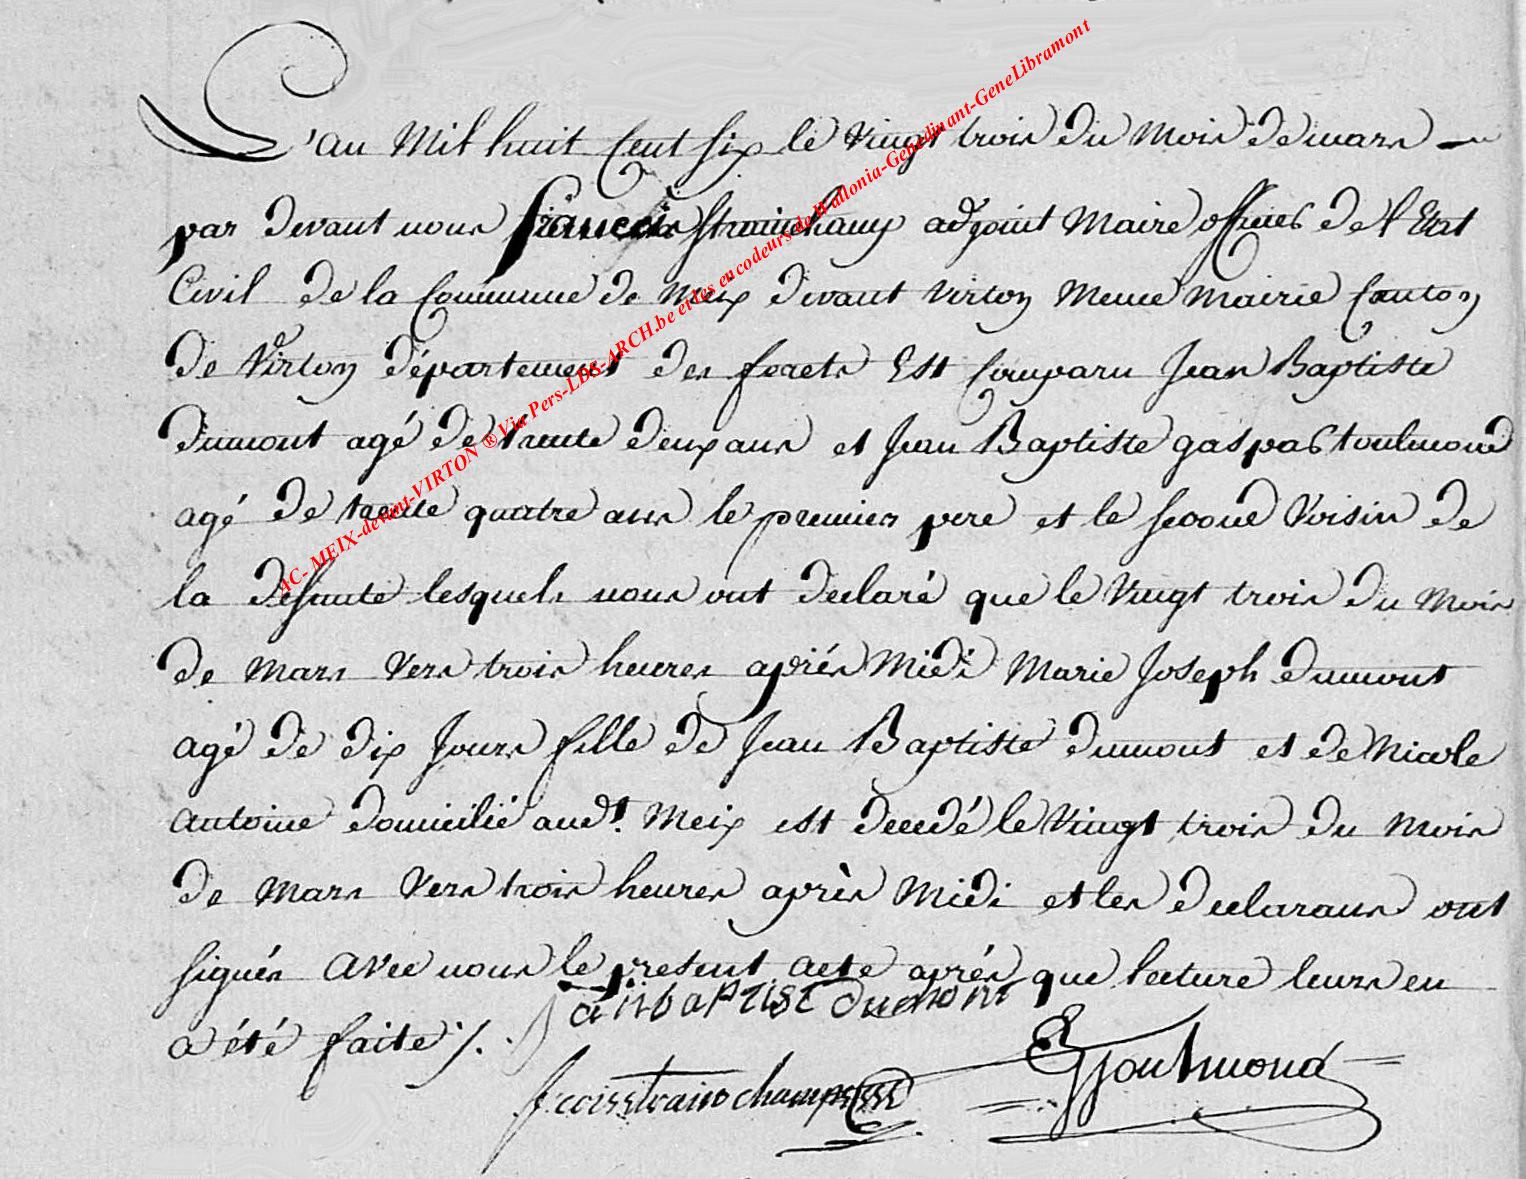 L'an Mil huit Cent six le vingt trois du Mois de mars
par devant nous francois Strainchamp adjoint Maire officier de l'Etat
Civil de la Commune de Meix devant Virton Meme Mairie Canton
de Virton département des forets Est Comparu Jean Baptiste
dumont agé de trente deux ans et Jean Baptiste gaspar toulmond
agé de trente quatre ans le premier pere et le second Voisin de
la defunte lesquels nous ont declaré que le Vingt trois du Mois
de Mars Vers trois heures aprés Midi Marie Joseph dumont
agé de dix Jours fille de Jean Baptiste dumont et de Nicole
Antoine domicilié aud.t Meix est decedé le Vingt trois du Mois
de Mars Vers trois heures après Midi et les declarans ont
signés avec nous le present acte aprés que lecture leurs en
a été faite /.
Jean bapTisT dumont
frcois strainchamps
Toulmond
AC- MEIX-devant-VIRTON ® Via Pers-LDS-ARCH.be et les encodeurs de Wallonia-Genedinant-GeneLibramont